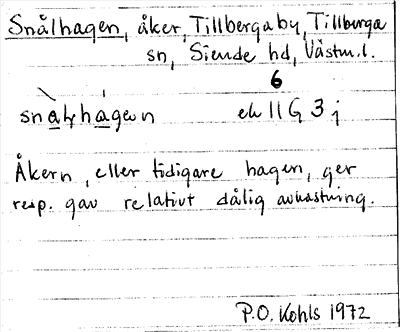 Snålhagen, åker, Tillberga by, Tillberga
sn, Siende hd, Västm. l.
6
ek 11G 3j
Åkern, eller tidigare hagen, ger
resp. gav relativt dålig avkastning.
P.O. Kohls 1972